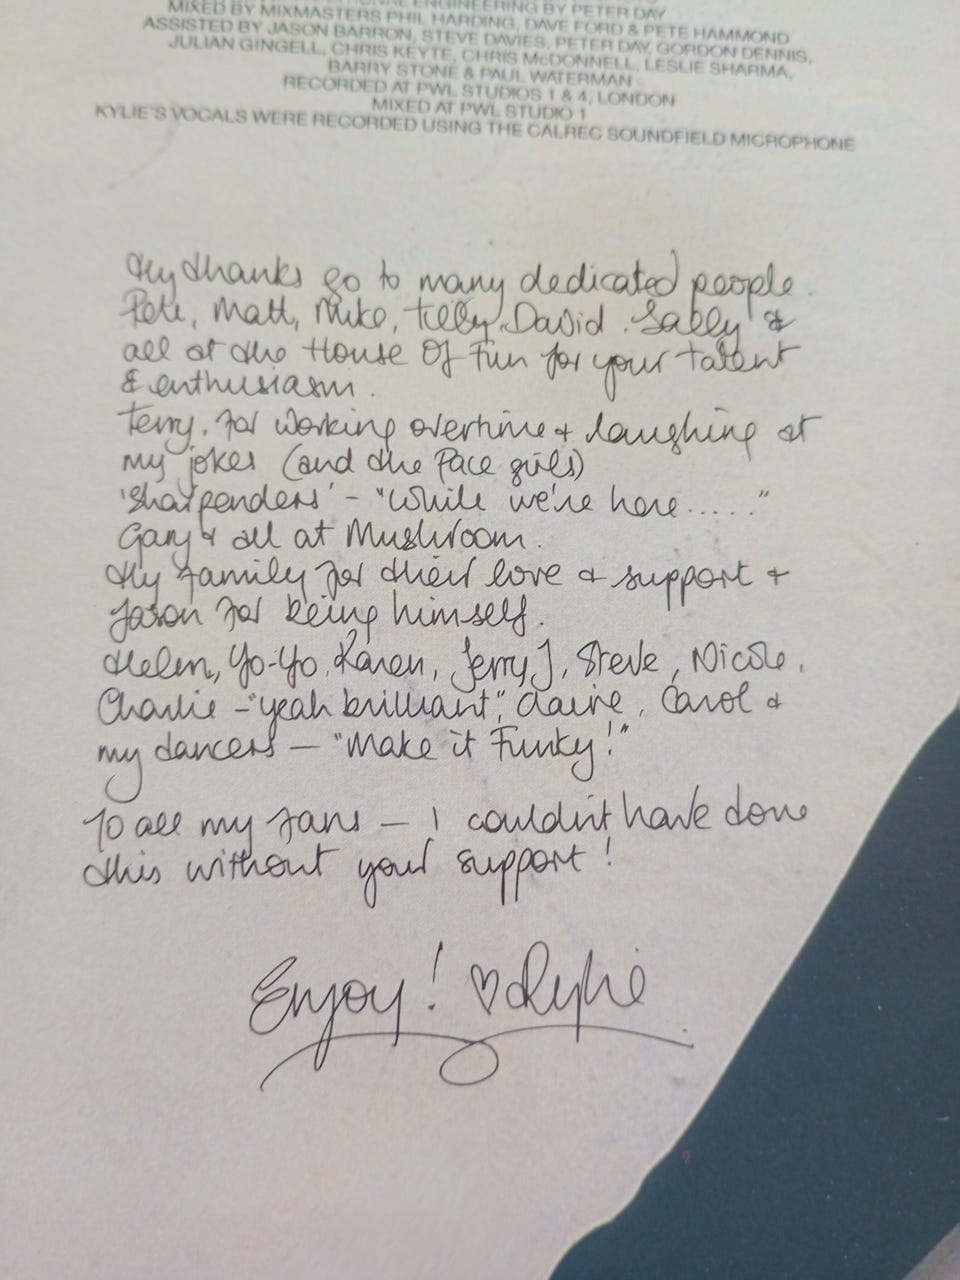 ENGINEERING BY PETER DAY
MIXED BY MIXMASTERS PHIL HARDING, DAVE FORD & PETE HAMMOND
ASSISTED BY JASON BARRON, STEVE DAVIES, PETER DAY, GORDON DENNIS,
JULIAN GINGELL, CHRIS KEYTE, CHRIS McDONNELL, LESLIE SHARMA,
BARRY STONE & PAUL WATERMAN
RECORDED AT PWL STUDIOS 1 & 4, LONDON
MIXED AT PWL STUDIO 1
KYLIE'S VOCALS WERE RECORDED USING THE CALREC SOUNDFIELD MICROPHONE
My thanks go to many dedicated people.
Pete, Matt, Mike, Tilly, David, Sally &
all at the House Of Fun for your talent
& enthusiasm.
Terry, for working overtime & laughing at
my jokes (and the Pace girls)
'Sharpenders' - "While we're here....."
Gary & all at Mushroom.
My family for their love & support &
Jason for being himself.
Helen, Yo-Yo, Karen, Jerry J, Steve, Nicole,
Charlie - "yeah brilliant", Claire, Carol &
my dancers - "Make it Funky!"
To all my fans - I couldn't have done
this without your support!
Enjoy! ♡Kylie